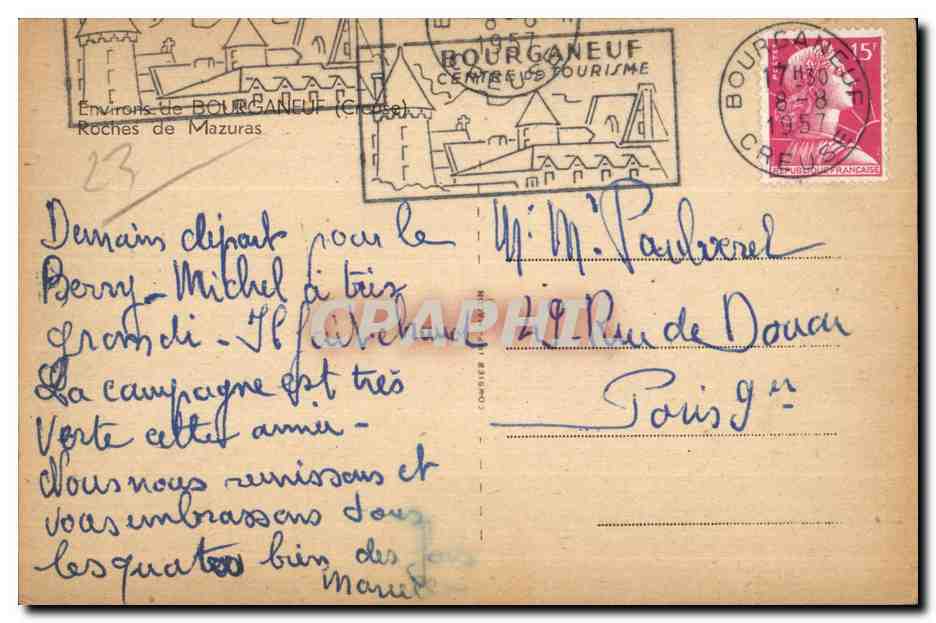 1957
BOURGANEUF
CENTRE DE TOURISME
BOURGANEUF
17 H30
8 - 8
1957
CREUSE
POSTES
15F
REPUBLIQUE FRANCAISE
Environs de BOURGANEUF (Creuse)
Roches de Mazuras
23
Demain départ pour le
Berry - Michel à très
grandi - Il fait chaud
La campagne est très
verte cette année -
Nous nous reunissons et
vous embrassons tous
les quatre bien des fois
Marcel
Mr Me
49 Rue de Douai
Paris 9er
CRAPHIL